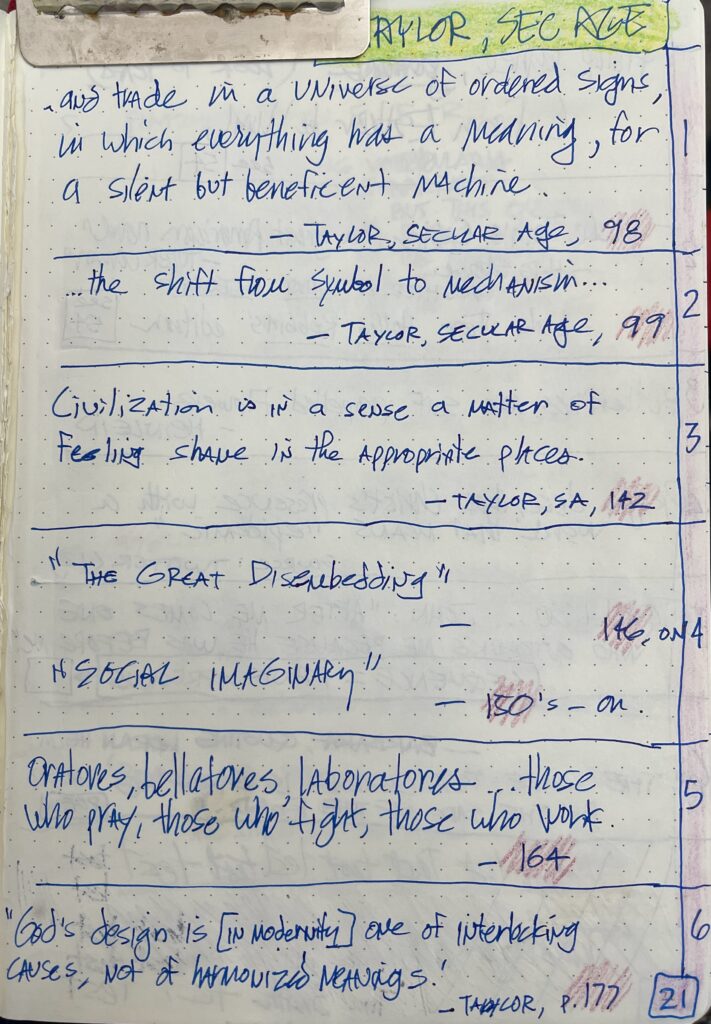 TAYLOR, SEC AGE
..and trade in a universe of ordered signs,
in which everything has a meaning, for
a silent but beneficent machine.
— TAYLOR, SECULAR Age, 98
1
...the shift from symbol to mechanism...
— TAYLOR, SECULAR Age, 99
2
Civilization is in a sense a matter of
feeling shame in the appropriate places.
— TAYLOR, SA, 142
3
"THE GREAT Disembedding"
— 146, on
4
"SOCIAL IMAGINARY"
— 150's – on.
Oratores, bellatores, laboratores ... those
who pray, those who fight, those who work.
— 164
5
"God's design is [in modernity] one of interlocking
causes, not of harmonized meanings."
— TAYLOR, p. 177
6
21